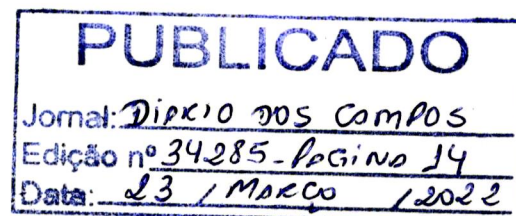 PUBLICADO
Jornal: DIARIO DOS CAMPOS
Edição nº 34285 - PAGINA 14
Data: 23 / MARCO / 2022